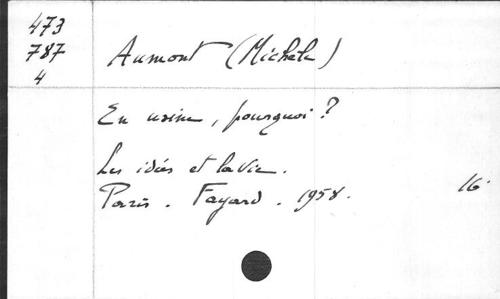 473
787
4
Aumont (Michèle)
En usine, pourquoi ?
Les idées et la vie.
Paris. Fayard. 1958.
16°